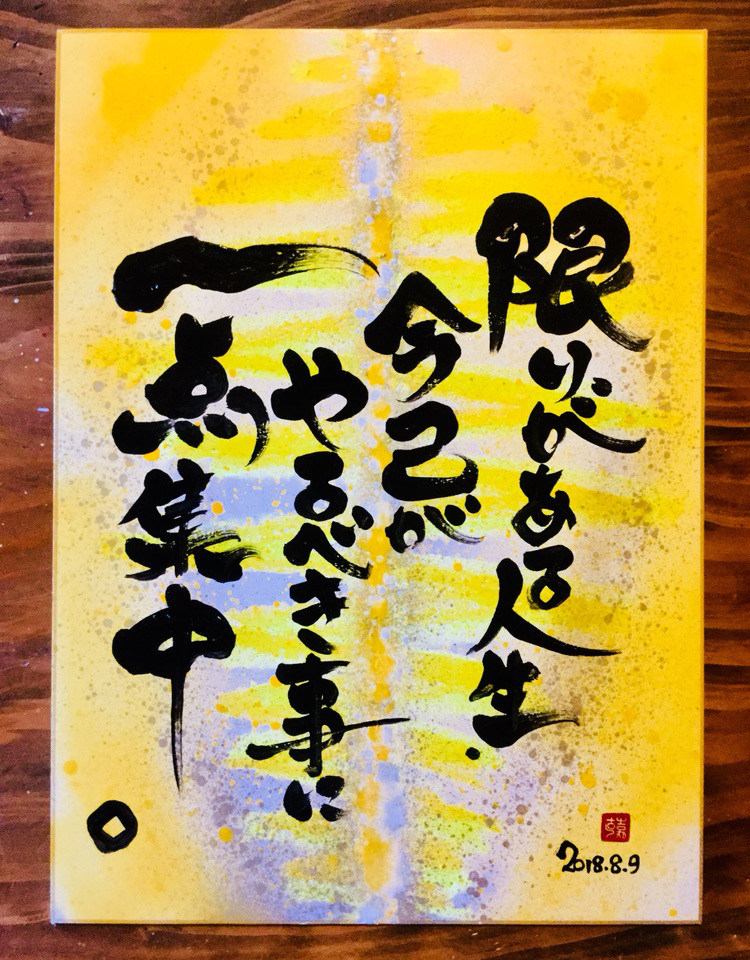 限りがある人生.
今己が
やるべき事に
一点集中。
2018.8.9